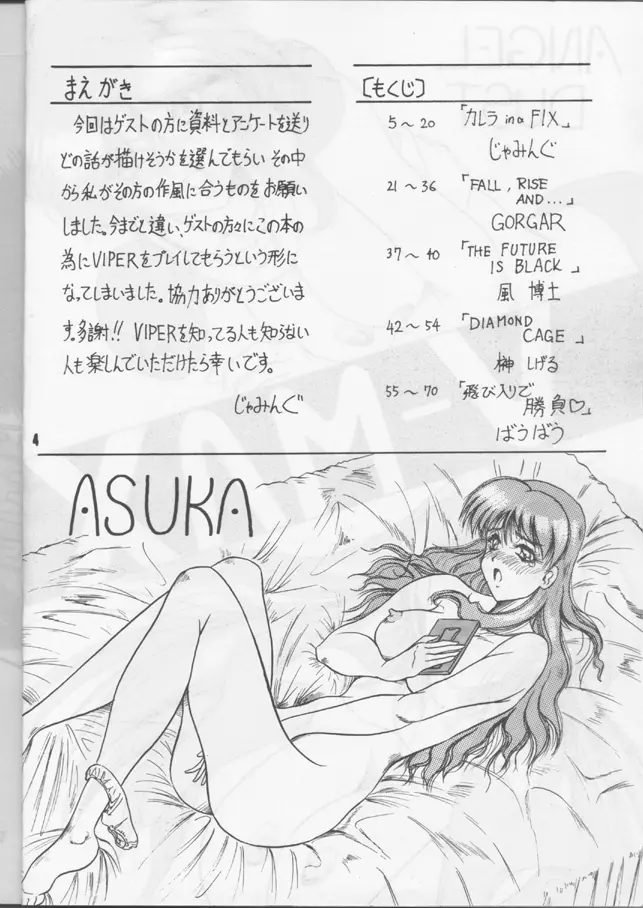 まえがき
今回はゲストの方に資料とアンケートを送り
どの話が描けそうかを選んでもらい その中
から私がその方の作風に合うものをお願い
しました。今までと違い、ゲストの方々にこの本の
為にVIPERをプレイしてもらうという形に
なってしまいました。協力ありがとうございま
す。多謝!! VIPERを知ってる人も知らない
人も楽しんでいただけたら幸いです。
じゃみんぐ
[もくじ]
5～20 「カレラ in a FIX」
じゃみんぐ
21～36 「FALL, RISE
AND...」
GORGAR
37～40 「THE FUTURE
IS BLACK」
風 博士
42～54 「DIAMOND
CAGE」
榊 しげる
55～70 「飛び入りで
勝負♡」
ばうばう
4
ASUKA